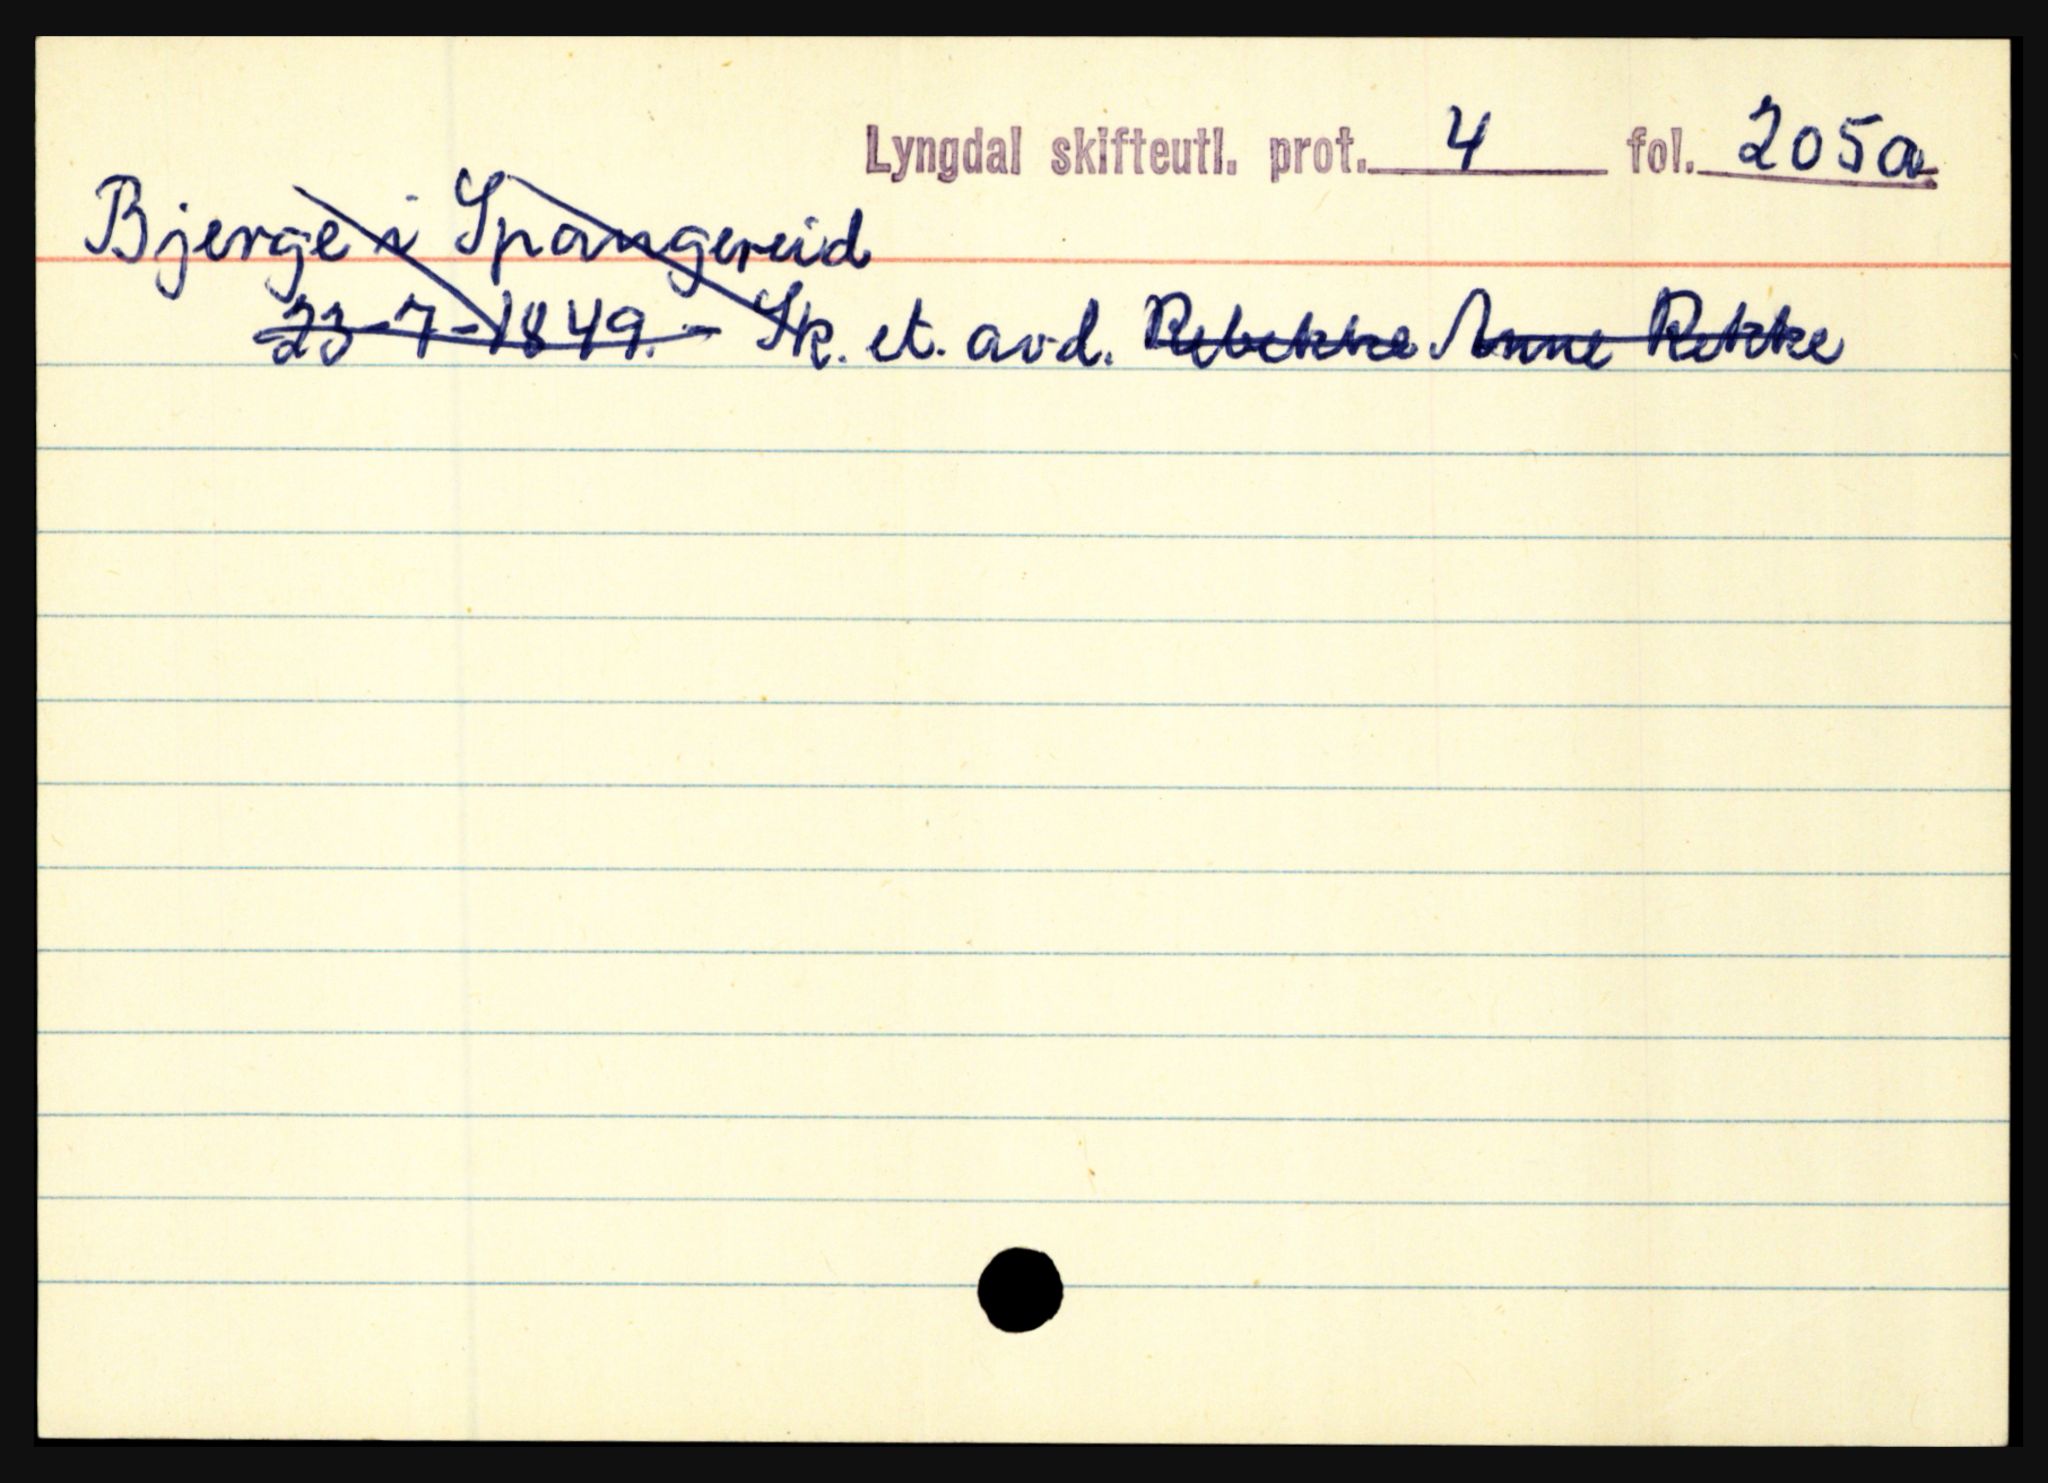 Lyngdal skifteutl. prot. 4 fol. 205a
Bjerge i Spangereid
23-7-1849. - Sk. et. avd. Rebekke Anne Rekke